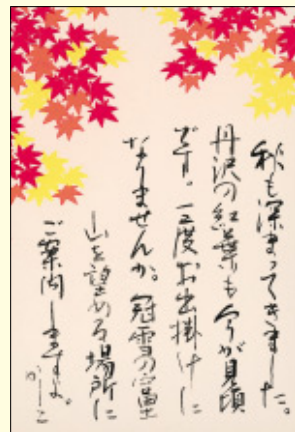 秋も深まってきました。
丹沢の紅葉も今が見頃
です。一度お出掛けに
なりませんか。冠雪の富士
山を望める場所に
ご案内しますよ。
かしこ